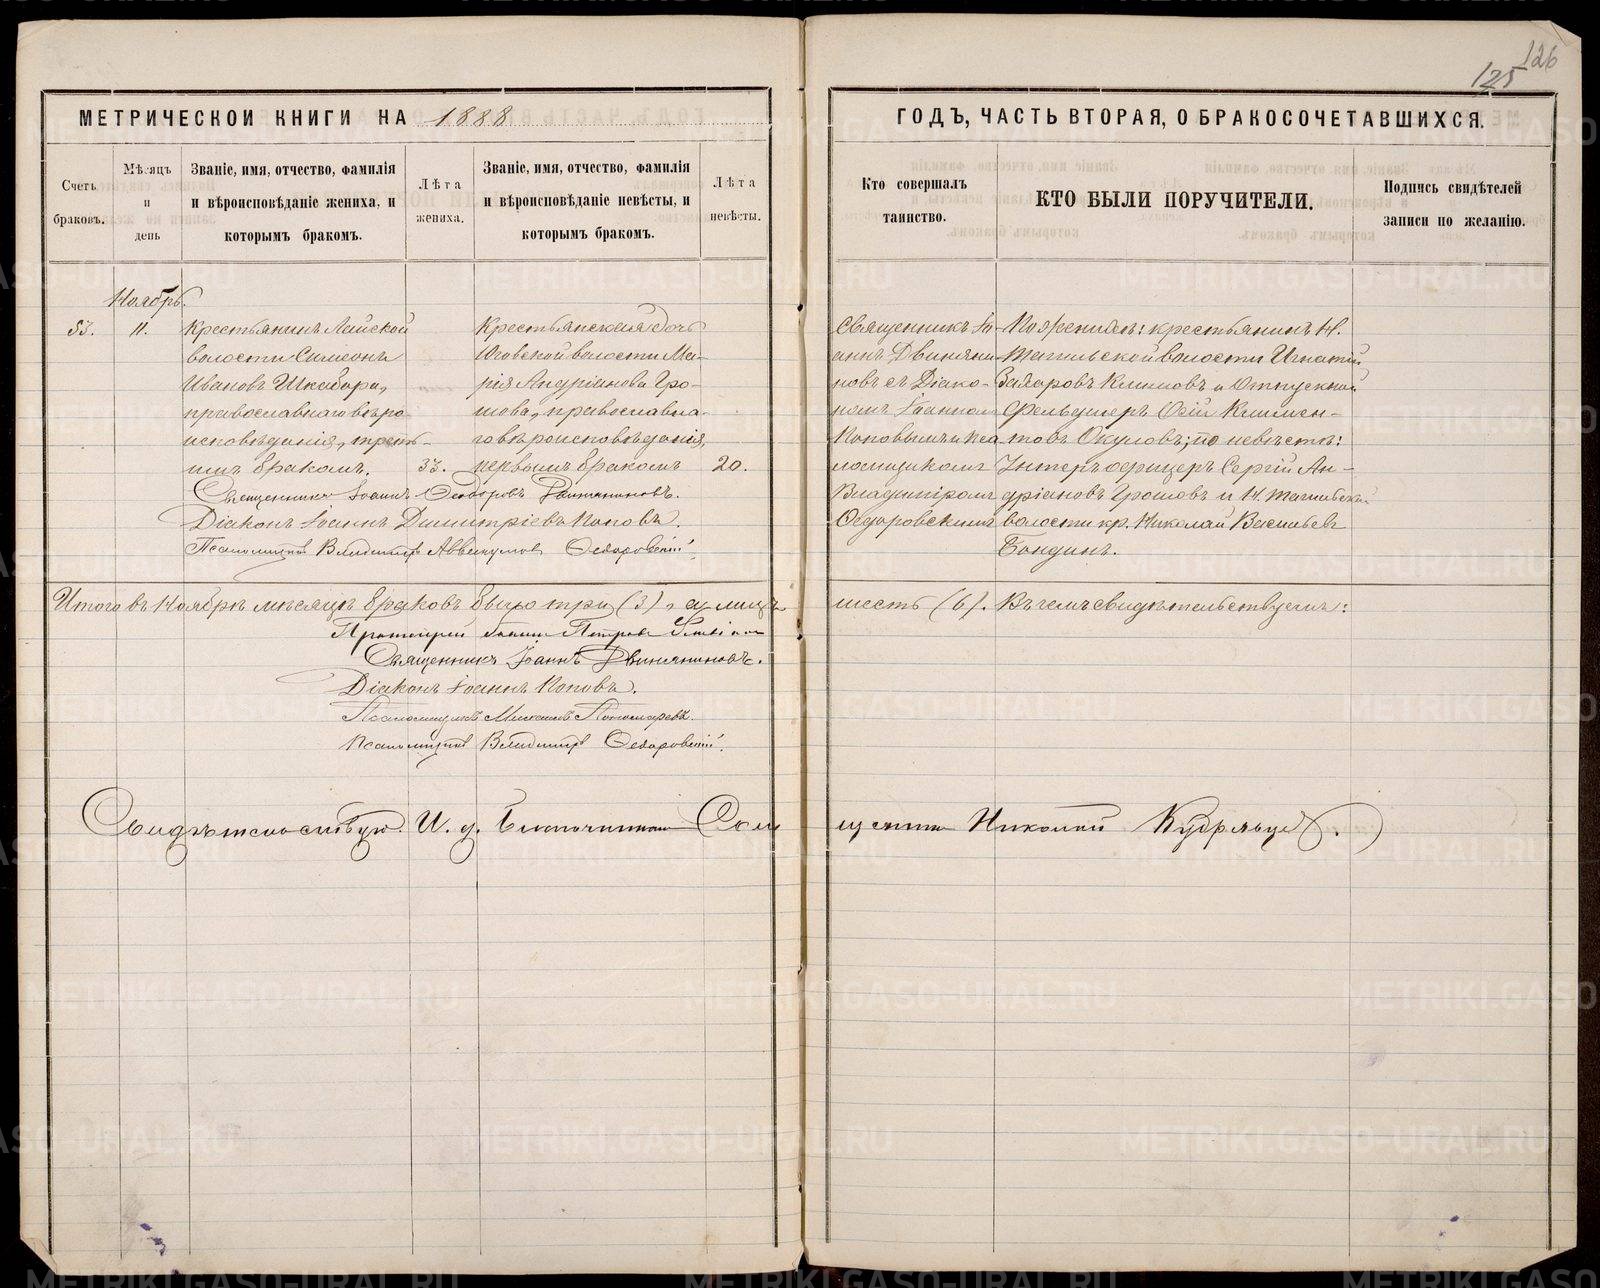 126
125
МЕТРИЧЕСКОЙ КНИГИ НА 1888
ГОДЪ, ЧАСТЬ ВТОРАЯ, О БРАКОСОЧЕТАВШИХСЯ.
Счетъ браковъ.
Мѣсяцъ и день
Званіе, имя, отчество, фамилія
и вѣроисповѣданіе жениха, и
которымъ бракомъ.
Лѣта жениха.
Званіе, имя, отчество, фамилія
и вѣроисповѣданіе невѣсты, и
которымъ бракомъ.
Лѣта невѣсты.
Кто совершалъ
таинство.
КТО БЫЛИ ПОРУЧИТЕЛИ.
Подпись свидѣтелей
записи по желанію.
Ноябрь.
53.
11.
Крестьянинъ Лайской
волости Симеонъ
Ивановъ Шкабара,
православнаго вѣро
исповѣданія, треть-
имъ бракомъ.
33.
Крестьянская дочь
Юговской волости Ма-
рія Андріанова Гро-
шова, православна-
го вѣроисповѣданія,
первымъ бракомъ
20.
Священникъ Іо-
аннъ Двиняни-
новъ съ Діако-
номъ Іоанномъ
Поповымъ и пса
ломщикомъ
Владиміромъ
Ѳедоровскимъ
По женихѣ: крестьянинъ Н.
Тагильской волости Игнатій
Захаровъ Климовъ и Отпускной
Фельдшеръ Осій Климен-
товъ Окуловъ; по невѣстѣ:
Унтеръ офицеръ Сергій Ан-
дріановъ Грошовъ и Н. Тагильской
волости кр. Николай Васильевъ
Бондинъ.
Священникъ Іоаннъ Ѳеодоровъ Двиняниновъ.
Діаконъ Іоаннъ Димитріевъ Поповъ.
Псаломщикъ Владиміръ Аввакумовъ Ѳедоровскій.
Итого въ Ноябрѣ мѣсяцѣ браковъ было три (3), а лицъ шесть (6). Въ чемъ свидѣтельствуемъ:
Протоіерей Іоаннъ Петровъ
Священникъ Іоаннъ Двиняниновъ.
Діаконъ Іоаннъ Поповъ.
Псаломщикъ Михаилъ Пономаревъ.
Псаломщикъ Владиміръ Ѳедоровскій.
Свидѣтельствую. И. д. Благочиннаго Священникъ Николай Кудрявцевъ.
METRIKI.GASO-URAL.RU